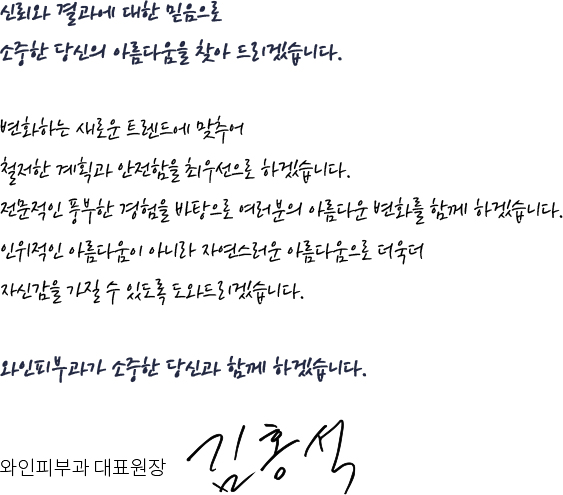 신뢰와 결과에 대한 믿음으로
소중한 당신의 아름다움을 찾아 드리겠습니다.
변화하는 새로운 트렌드에 맞추어
철저한 계획과 안전함을 최우선으로 하겠습니다.
전문적인 풍부한 경험을 바탕으로 여러분의 아름다운 변화를 함께 하겠습니다.
인위적인 아름다움이 아니라 자연스러운 아름다움으로 더욱더
자신감을 가질 수 있도록 도와드리겠습니다.
와인피부과가 소중한 당신과 함께 하겠습니다.
와인피부과 대표원장 김홍석